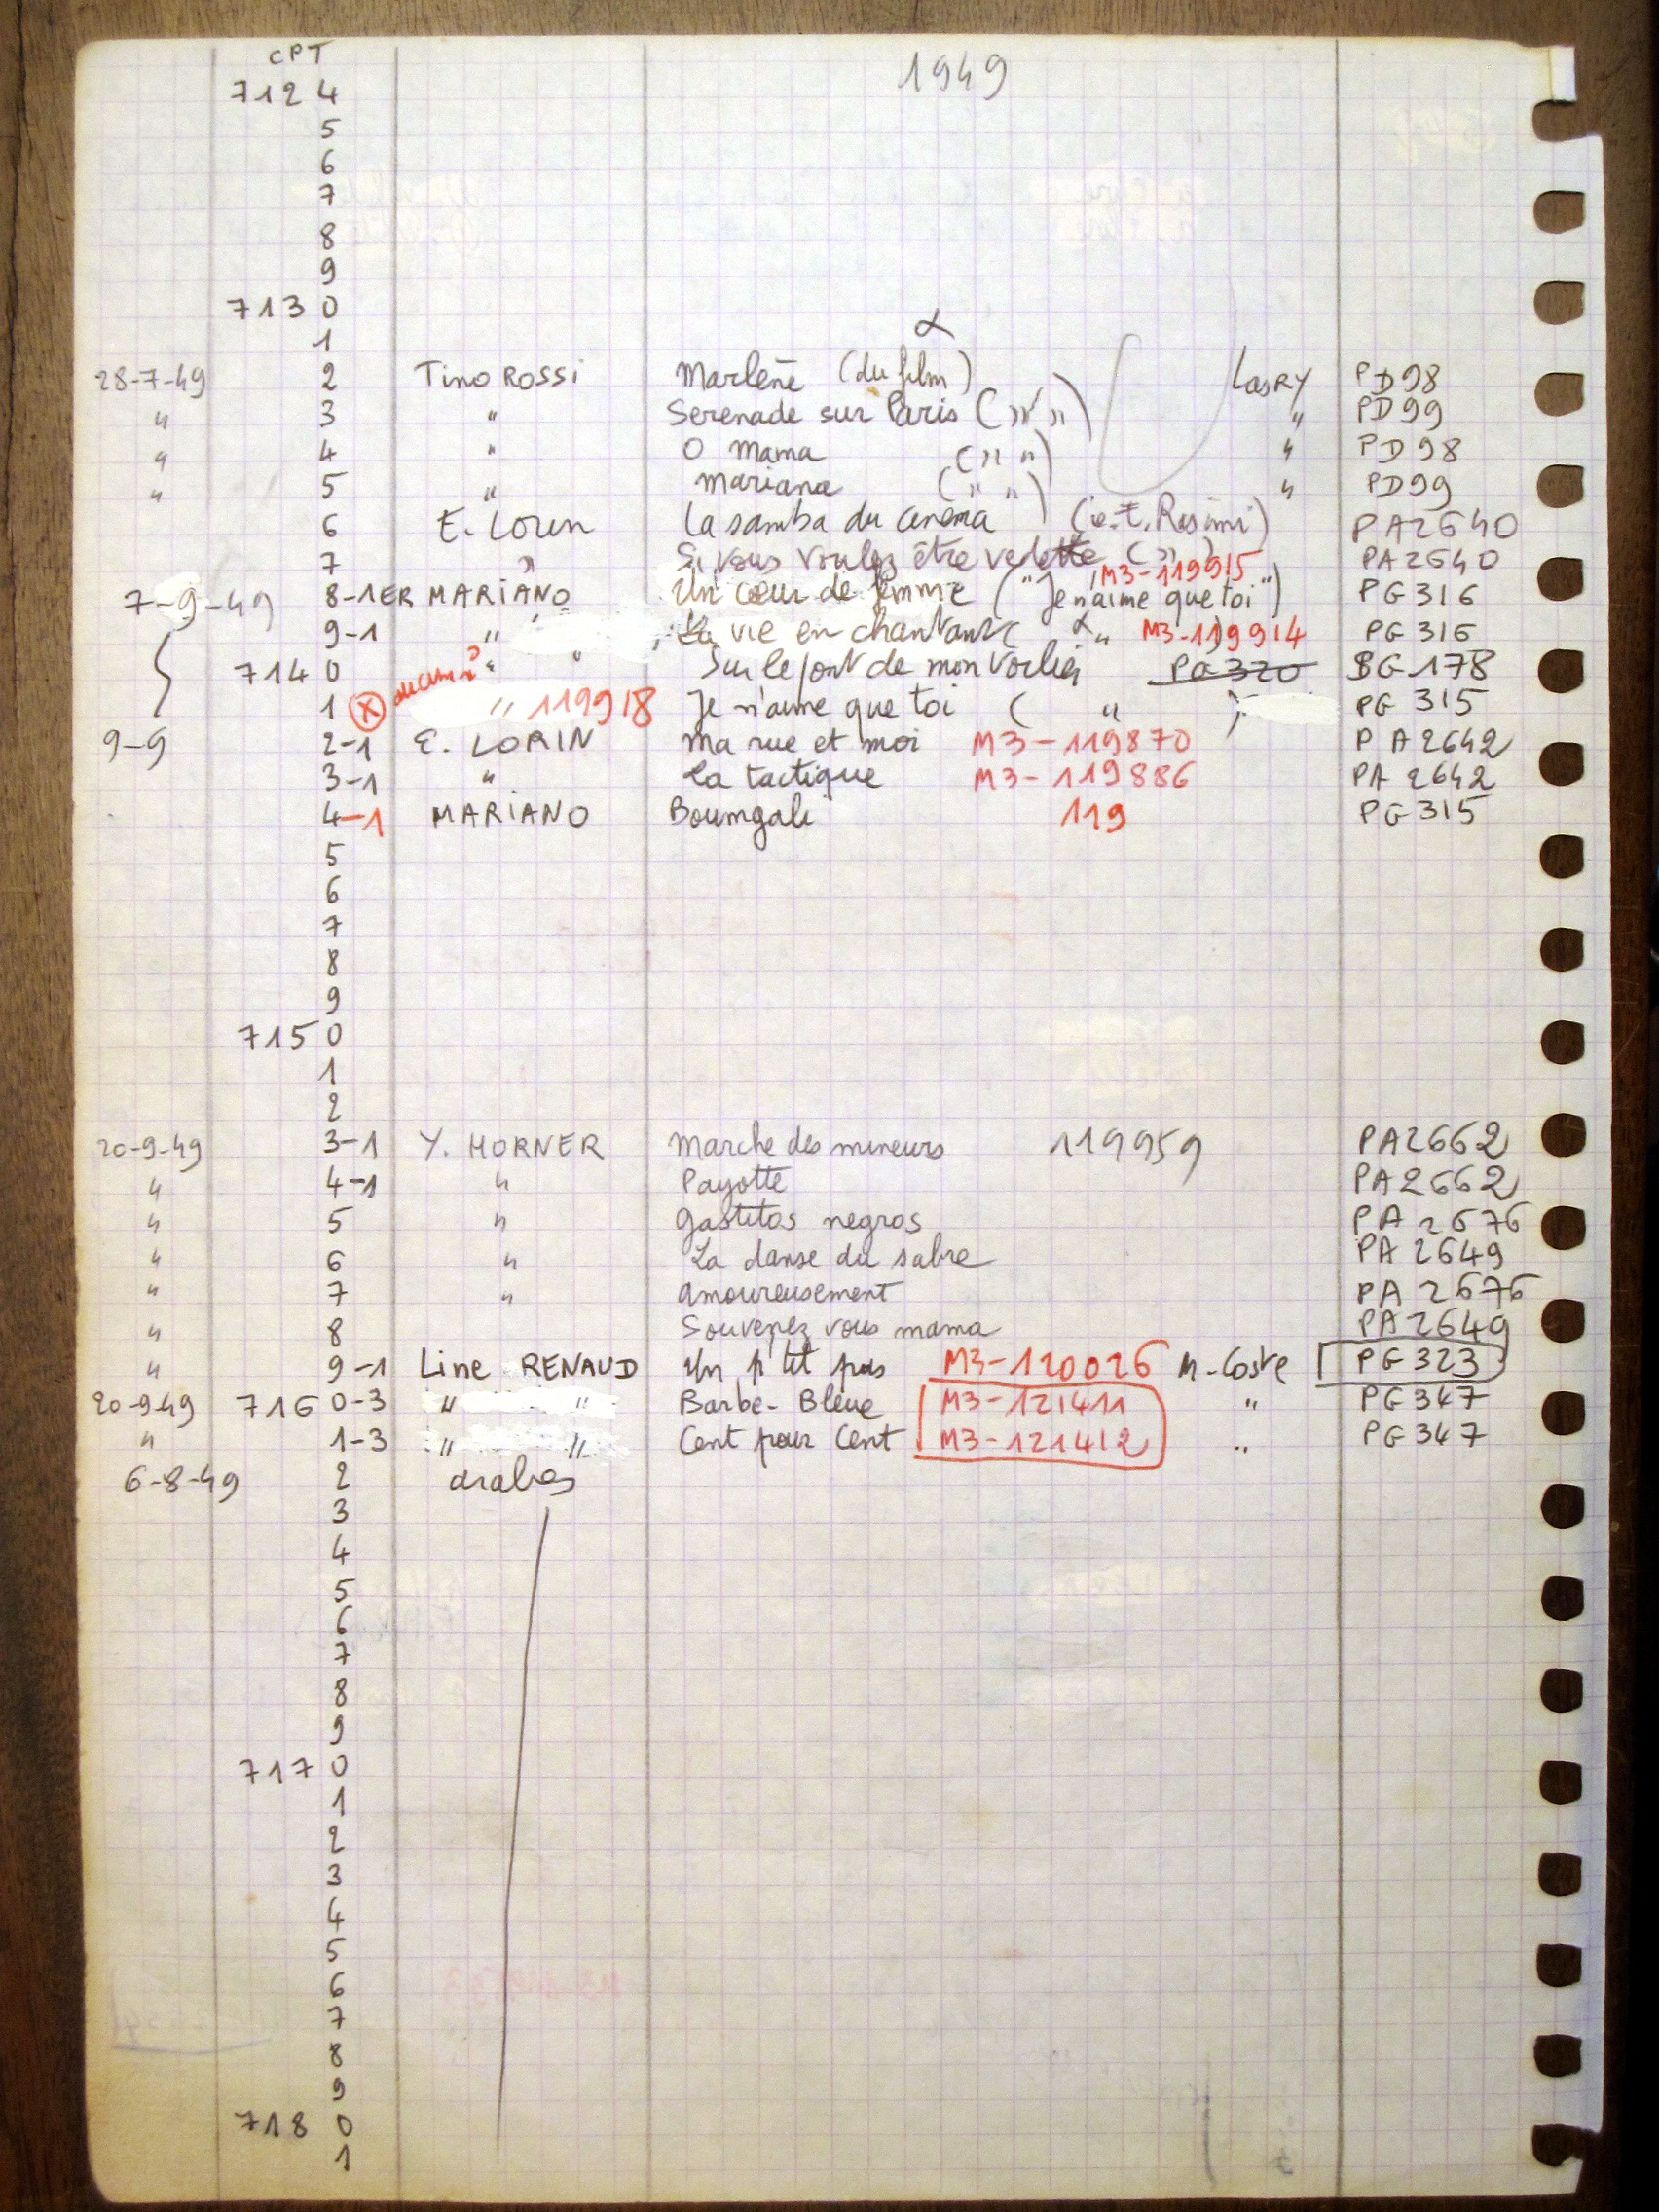 CPT
1949
7124
5
6
7
8
9
7130
1
28-7-49 2 Tino ROSSI Marlène (du film) LasRY PD98
" 3 " Serenade sur Paris (" ") " PD99
" 4 " O Mama (" ") " PD98
" 5 " Mariana (" ") " PD99
6 E. Lorin La samba du cinema (ie. E. Rosimi) PA2640
7 " Si vous voulez être vedette (") PA2640
M3-119915
7-9-49 8-1ER MARIANO Un cœur de femme ("Je n'aime que toi") PG316
9-1 " La vie en chantant ( " M3-119914 PG316
7140 " " Sur le pont de mon voilier PG 320 BG178
1 X " 119918 Je n'aime que toi ( " ) PG 315
9-9 2-1 E. LORIN Ma rue et moi M3-119870 PA2642
3-1 " La tactique M3-119886 PA2642
4-1 MARIANO Boumgali 119 PG315
5
6
7
8
9
7150
1
2
20-9-49 3-1 Y. HORNER Marche des mineurs 119959 PA2662
" 4-1 " Payotte PA2662
" 5 " Gastitos negros PA2676
" 6 " La danse du sabre PA2649
" 7 " Amoureusement PA2676
" 8 Souvenez vous mama PA2649
" 9-1 Line RENAUD Un p'tit pas M3-120026 M-Coste PG323
20-9-49 7160-3 " " Barbe-Bleue M3-121411 " PG347
" 1-3 " " Cent pour Cent M3-121412 " PG347
6-8-49 2 arabes
3
4
5
6
7
8
9
7170
1
2
3
4
5
6
7
8
9
7180
1